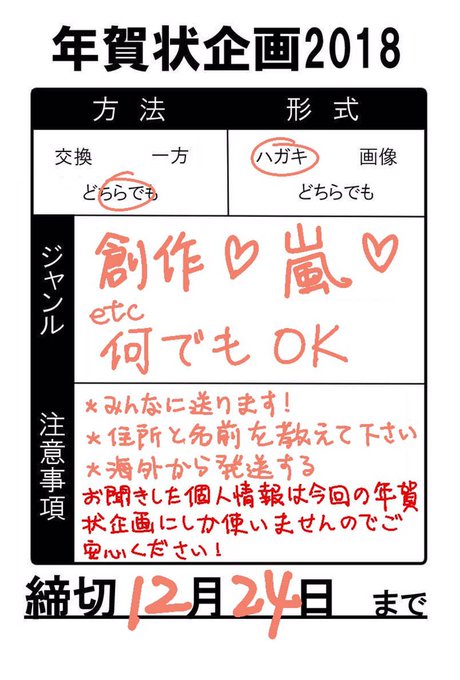 年賀状企画2018
方法 形式
交換 一方 ハガキ 画像
どちらでも どちらでも
ジャンル
創作♡嵐♡
etc
何でもOK
注意事項
*みんなに送ります!
*住所と名前を教えて下さい
*海外から発送する
お聞きした個人情報は今回の年賀
状企画にしか使いませんのでご
安心ください!
締切12月24日 まで